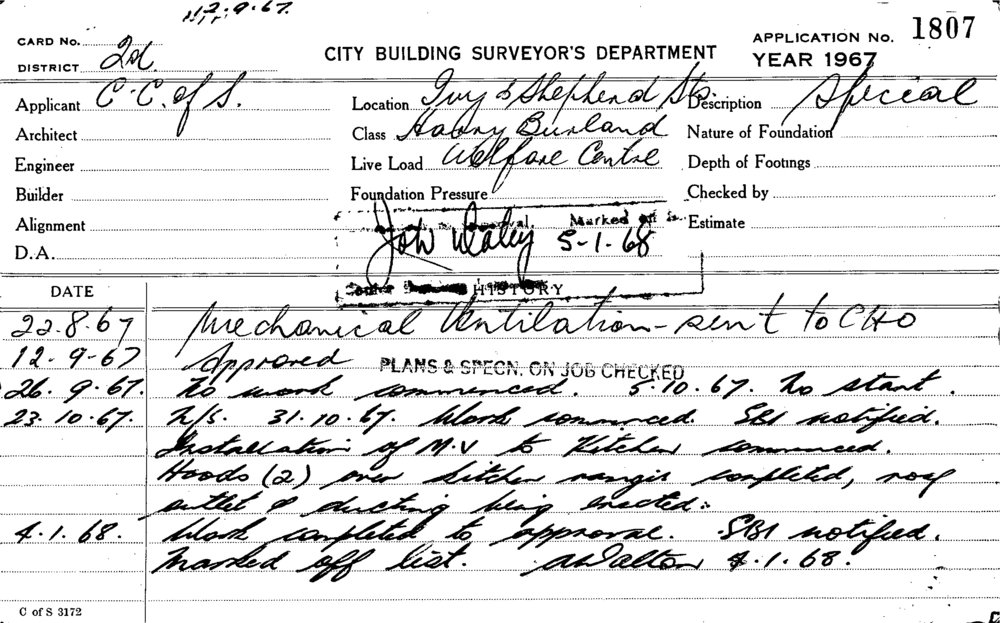 12.9.67.
CARD No.
DISTRICT 2d.
CITY BUILDING SURVEYOR'S DEPARTMENT
APPLICATION No. 1807
YEAR 1967
Applicant C.C. of S.
Location Ivy & Shepherd Sts.
Description Special
Architect
Class Harry Burland
Nature of Foundation
Engineer
Live Load Welfare Centre
Depth of Footings
Builder
Foundation Pressure
Checked by
Alignment
Marked off
Estimate
D.A.
John Daley 5-1-68
DATE
HISTORY
22.8.67 Mechanical Ventilation - sent to CHO
12.9-67 Approved PLANS & SPECN. ON JOB CHECKED
26.9.67. No work commenced. 5.10.67. No start.
23.10.67. N/S. 31.10.67. Work commenced. SBI notified.
Installation of M.V to Kitchen commenced.
Hoods (2) over kitchen ranges completed, roof
outlet & ducting being erected.
4.1.68. Work completed to approval. SBI notified.
Marked off list. AWalton 4.1.68.
C of S 3172